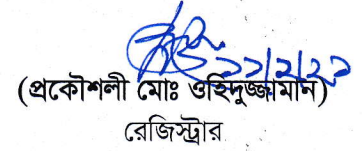 ২২/২/২১
(প্রকৌশলী মোঃ ওহিদুজ্জামান)
রেজিস্ট্রার